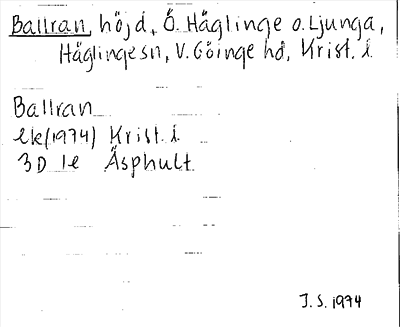 Ballran, höjd, Ö. Häglinge o. Ljunga,
Häglinge sn, V. Göinge hd, Krist. l
Ballran
ek (1974) Krist. l.
3D 1e Äsphult
J.S. 1974